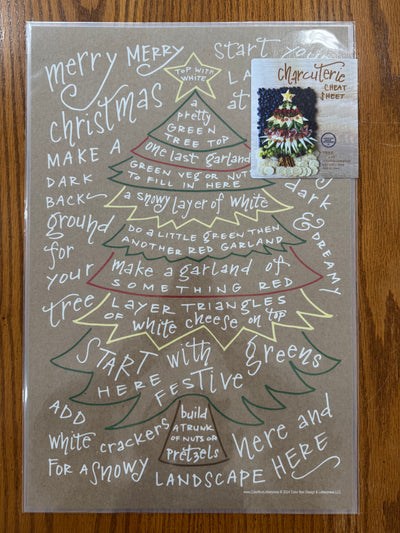 merry MERRY
christmas
start yo
LA
at
charcuterie
CHEAT
SHEET
MAKE A
DARK
BACK
ground
for
your
tree
dark
& DREAMY
TOP WITH
WHITE
a
pretty
GREEN
TREE TOP
one last garland
GREEN VEG OR NUTS
TO FILL IN HERE
a snowy layer of white
DO A LITTLE GREEN THEN
ANOTHER RED GARLAND
make a garland of
SOMETHING RED
LAYER TRIANGLES
OF white cheese on top
START with greens
HERE FESTIVE
build
A TRUNK
OF NUTS OR
PRETZELS
ADD
white crackers
FOR A SNOWY
LANDSCAPE HERE
here and